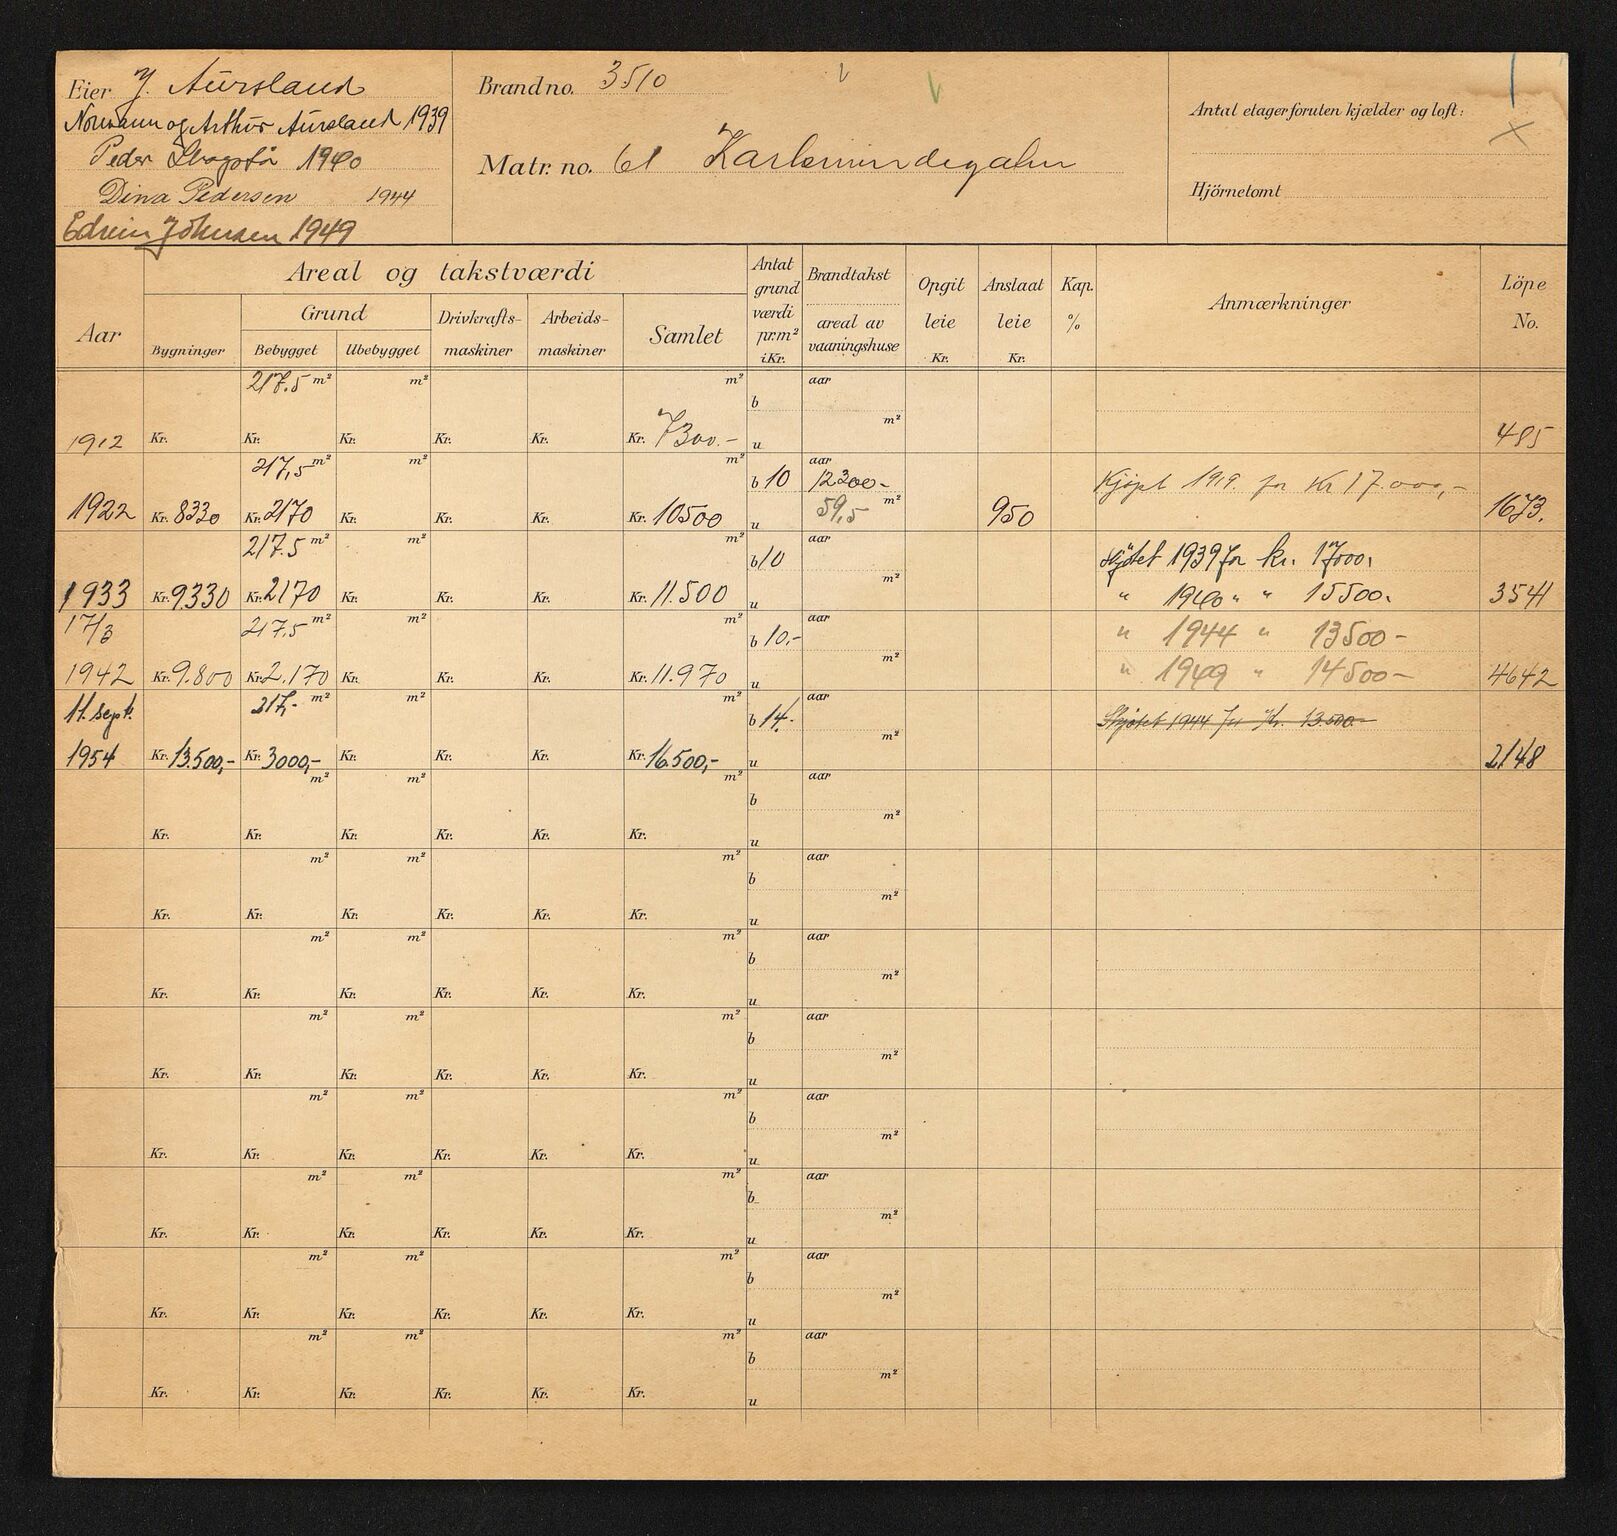 Eier J. Aursland
Normann og Arthur Aursland 1939
Peder 1940
Dina Pedersen 1944
Edvin Johnsen 1949
Brand no. 3510
Matr. no. 61 Karlsminnegaten
Antal etager foruten kjælder og loft:
Hjörnetomt
Aar
Areal og takstværdi
Bygninger
Grund
Bebygget Ubebygget
Drivkrafts-
maskiner
Arbeids-
maskiner
Samlet
Antat
grund
værdi
pr. m²
i Kr.
Brandtakst
areal av
vaaningshuse
Opgit
leie
Kr.
Anslaat
leie
Kr.
Kap.
%
Anmærkninger
Löpe
No.
217.5 m² m² m² aar
b
m²
1912 Kr. Kr. Kr. Kr. Kr. Kr. 7300.- u 485
217,5 m² m² m² aar
b 10 12300.- Kjøpt 1919 for Kr 17.000,-
59,5 m²
1922 Kr. 8330 Kr. 2170 Kr. Kr. Kr. Kr. 10500 u 950 1673.
217.5 m² m² m² aar
b 10 Skjøtet 1939 for kr. 17000.
m²
1933 Kr. 9.330 Kr. 2170 Kr. Kr. Kr. Kr. 11.500 u " 1940 " " 15500. 3541
17/3 217.5 m² m² m² aar
b 10,- " 1944 " 13500 -
m²
1942 Kr. 9.800 Kr. 2.170 Kr. Kr. Kr. Kr. 11.970 u " 1949 " 14500 - 4642
11. sept. 217,- m² m² m² aar
b 14.- Skjøtet 1944 for Kr. 13.500.-
m²
1954 Kr. 13.500,- Kr. 3000,- Kr. Kr. Kr. Kr. 16.500,- u 2148
m² m² m² aar
b
m²
Kr. Kr. Kr. Kr. Kr. Kr. u
m² m² m² aar
b
m²
Kr. Kr. Kr. Kr. Kr. Kr. u
m² m² m² aar
b
m²
Kr. Kr. Kr. Kr. Kr. Kr. u
m² m² m² aar
b
m²
Kr. Kr. Kr. Kr. Kr. Kr. u
m² m² m² aar
b
m²
Kr. Kr. Kr. Kr. Kr. Kr. u
m² m² m² aar
b
m²
Kr. Kr. Kr. Kr. Kr. Kr. u
m² m² m² aar
b
m²
Kr. Kr. Kr. Kr. Kr. Kr. u
m² m² m² aar
b
m²
Kr. Kr. Kr. Kr. Kr. Kr. u